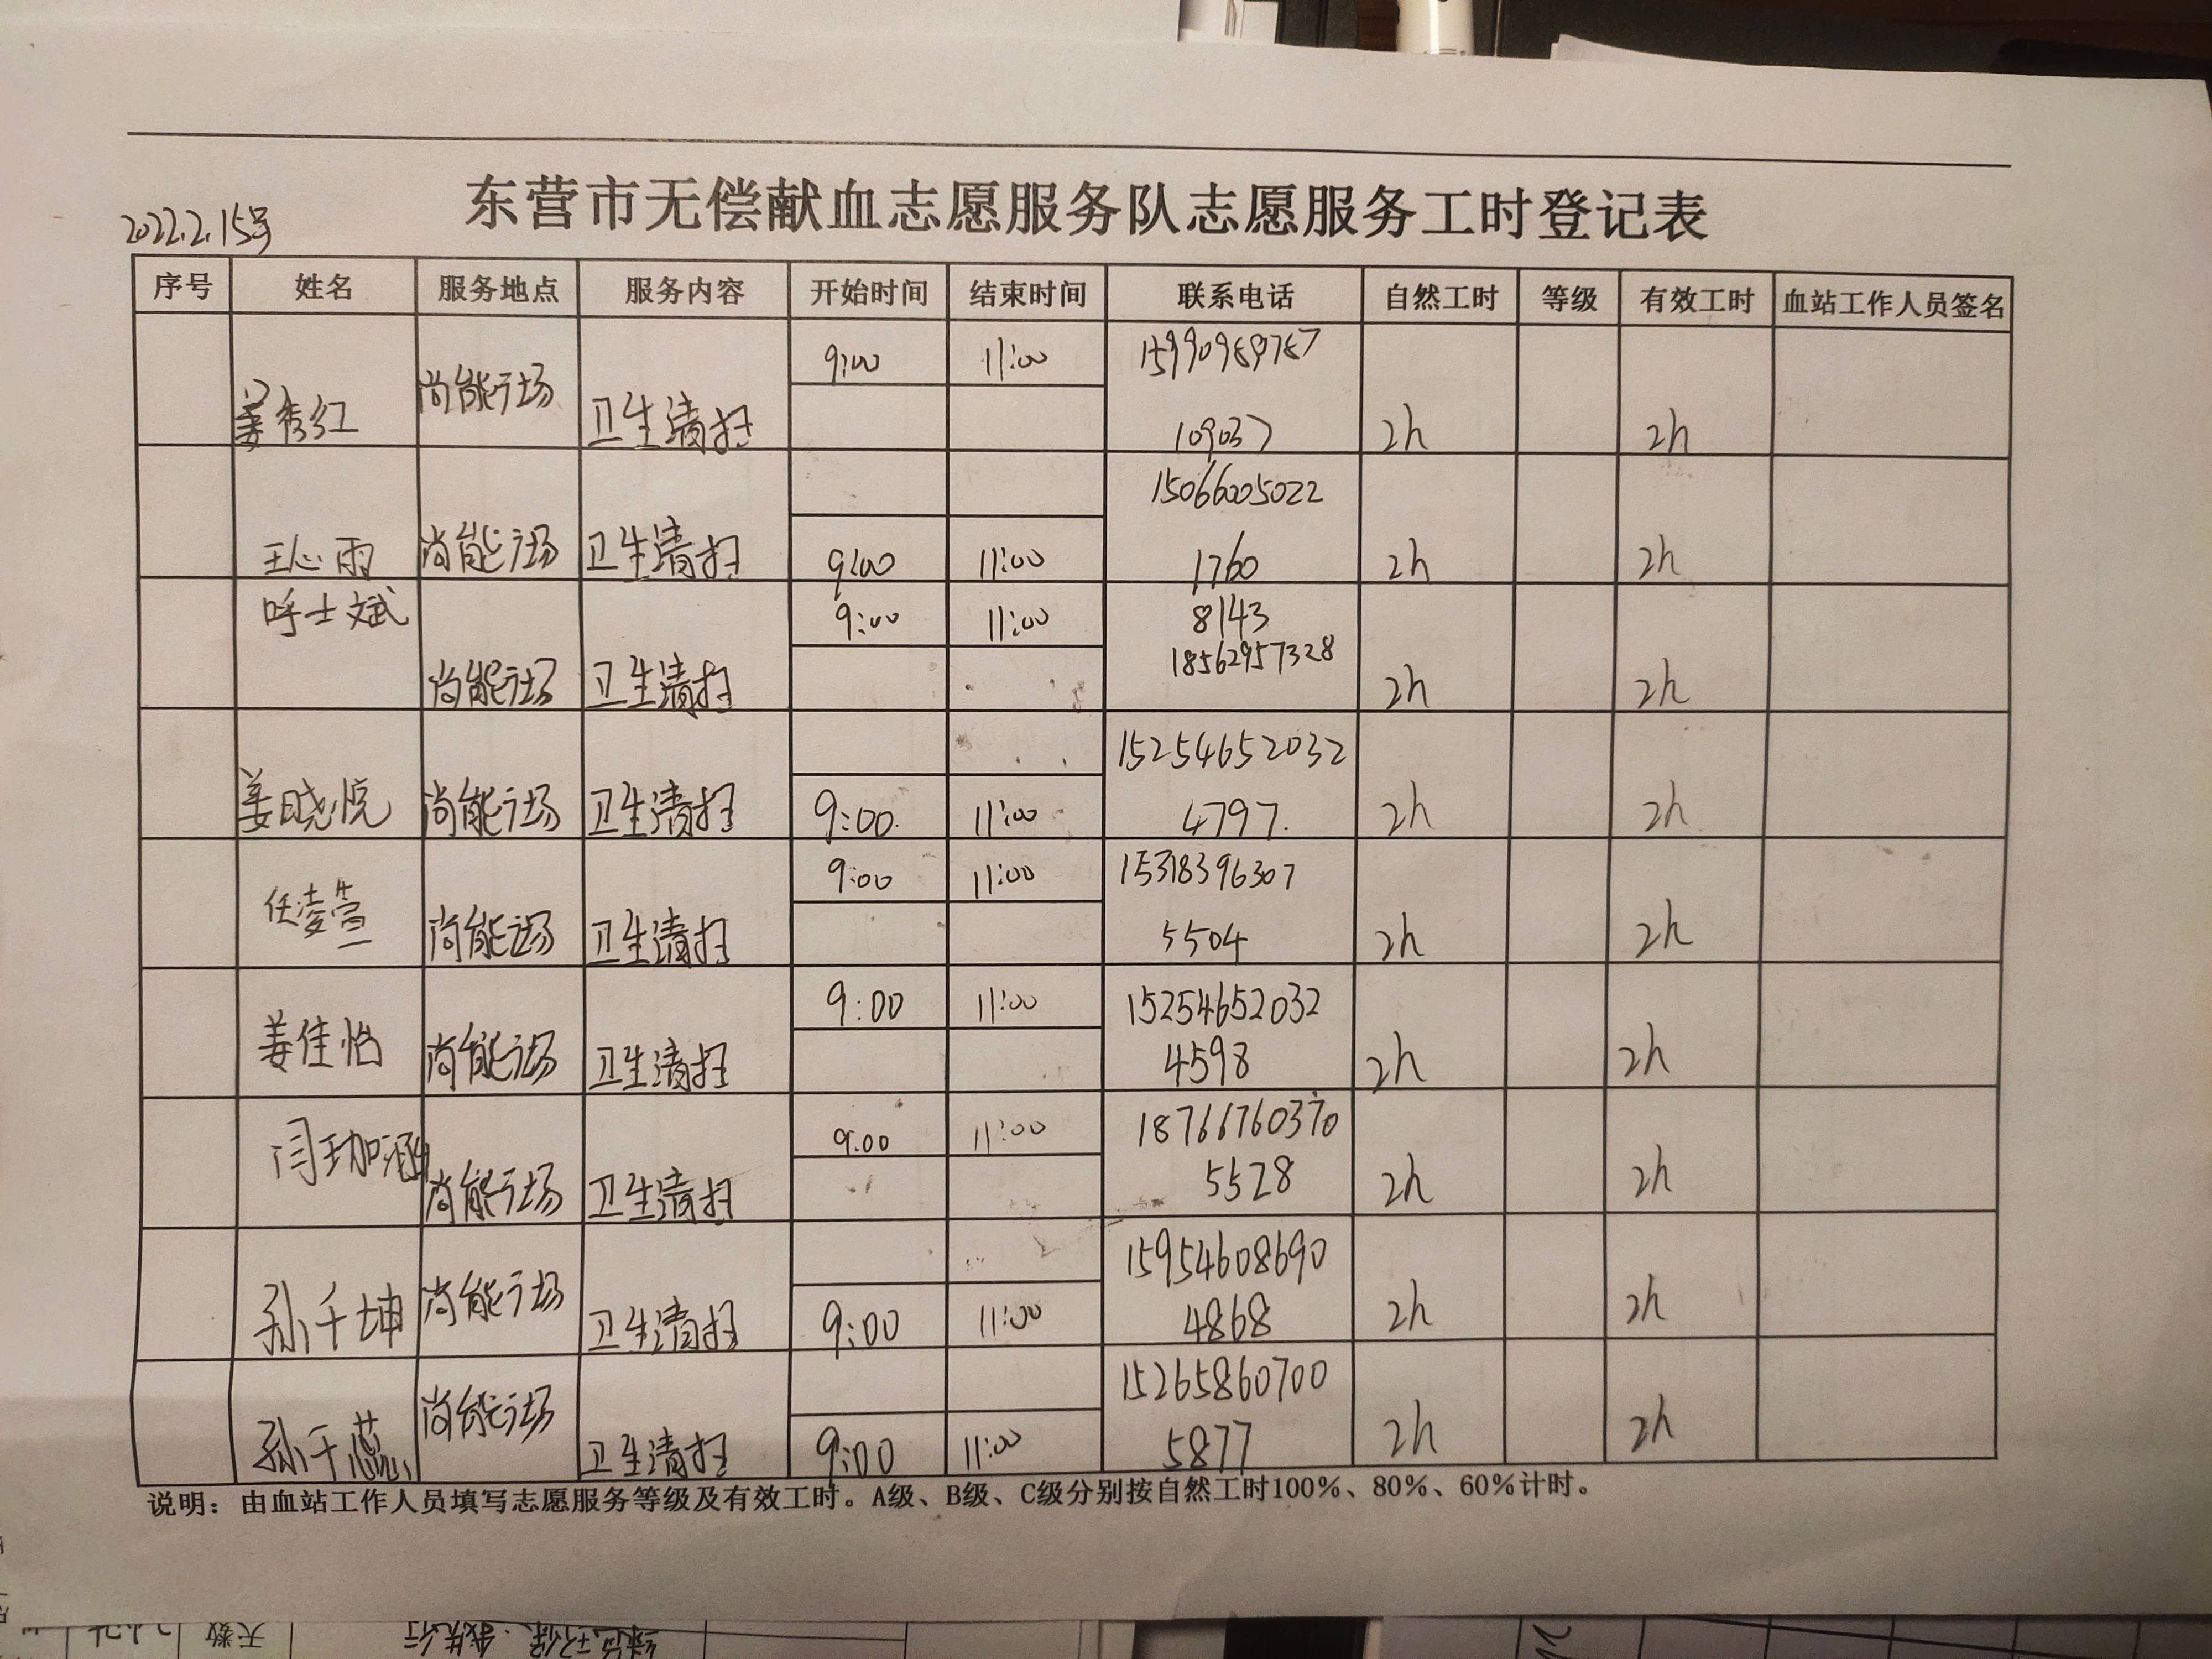 东营市无偿献血志愿服务队志愿服务工时登记表
2022.2.15号
序号 姓名 服务地点 服务内容 开始时间 结束时间 联系电话 自然工时 等级 有效工时 血站工作人员签名
9:00 11:00
姜秀红 尚能广场 卫生清扫 109037 2h 2h
15066005022
王心雨 尚能广场 卫生清扫 9:00 11:00 1760 2h 2h
呼士斌 9:00 11:00 8143
尚能广场 卫生清扫 18562957328 2h 2h
15254652032
姜晓悦 尚能广场 卫生清扫 9:00 11:00 4797 2h 2h
9:00 11:00 15318396307
任凌萱 尚能广场 卫生清扫 5504 2h 2h
9:00 11:00 15254652032
姜佳怡 尚能广场 卫生清扫 4598 2h 2h
9:00 11:00 18766760370
闫珈涵 尚能广场 卫生清扫 5528 2h 2h
15954608690
孙千坤 尚能广场 卫生清扫 9:00 11:00 4868 2h 2h
15265860700
孙千蕊 尚能广场 卫生清扫 9:00 11:00 5877 2h 2h
说明：由血站工作人员填写志愿服务等级及有效工时。A级、B级、C级分别按自然工时100%、80%、60%计时。
天数